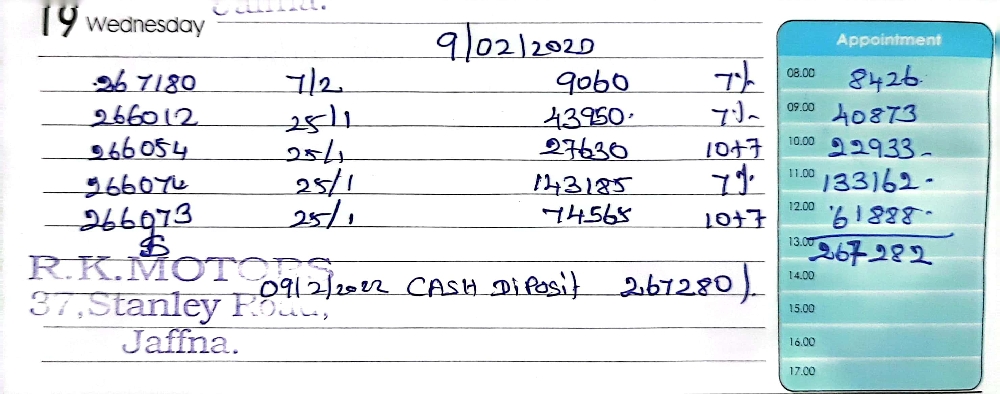 19 Wednesday
9/02/2020 Appointment
267180 7/2 9060 7% 08.00 8426.
266012 25/1 43950. 7% 09.00 40873
266054 25/1 27630 10+7 10.00 22933-
266074 25/1 143185 7% 11.00 133162-
266073 25/1 74565 10+7 12.00 61888-
13.00 267282
R.K.MOTORS
09/2/2022 CASH DiPosit 267280/. 14.00
37,Stanley Road, 15.00
Jaffna. 16.00
17.00